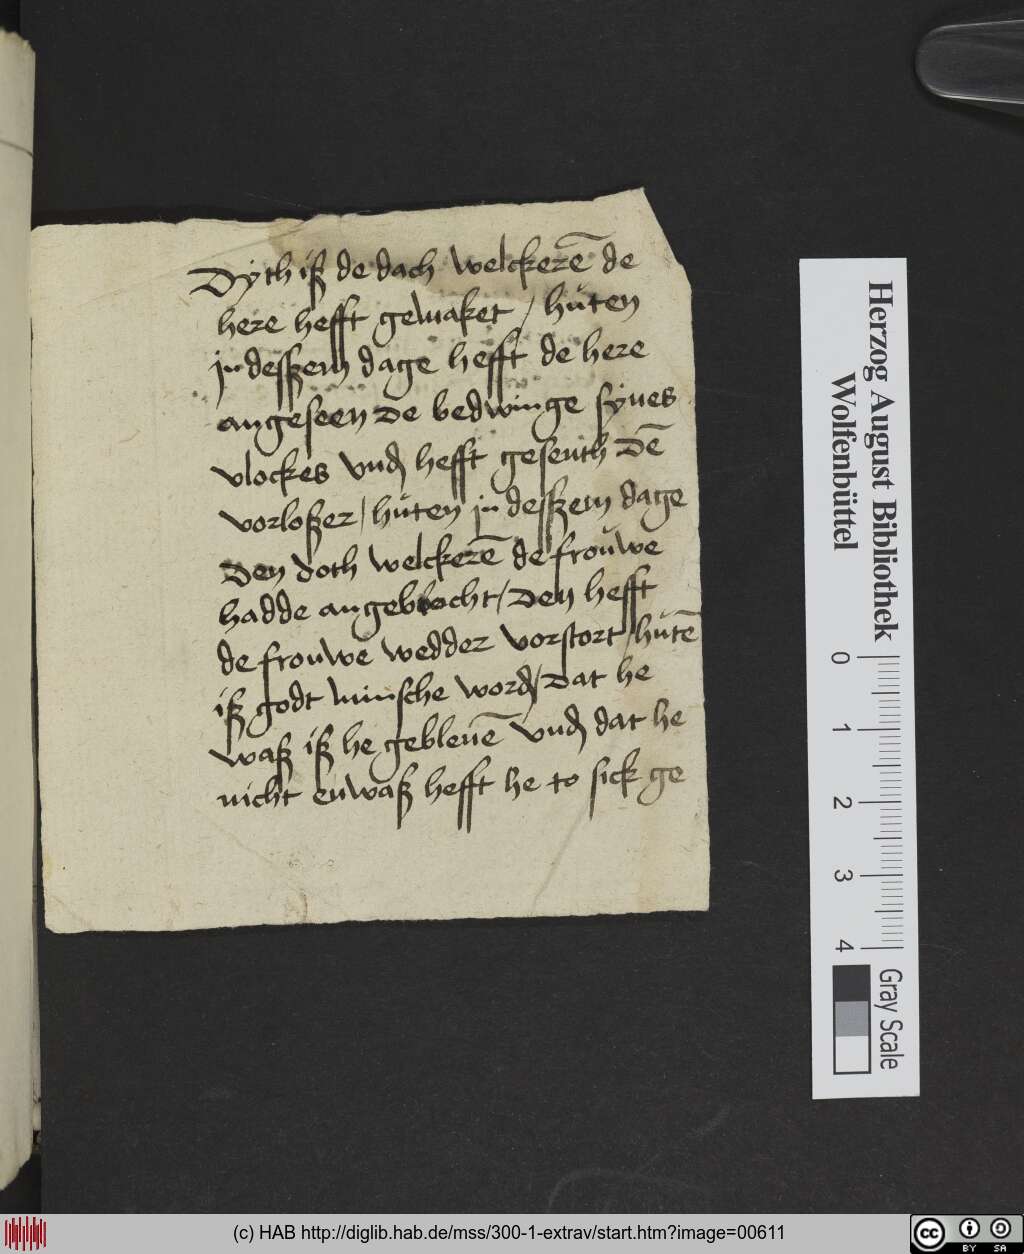 Dyth iß de dach welckerē de
here hefft gemaket / huten
in desßem dage hefft de here
angeseen de bedwinge synes
vlockes vnd hefft gesenth dē
vorloßer / huten in desßem dage
den doth welckerē de frouwe
hadde angebrocht / den hefft
de frouwe wedder vorstort / hutē
iß godt minsche word / dat he
waß iß he gebleuē vnd dat he
nicht enwaß hefft he to sick ge
Herzog August Bibliothek
Wolfenbüttel
0 1 2 3 4
Gray Scale
(c) HAB http://diglib.hab.de/mss/300-1-extrav/start.htm?image=00611
cc BY SA